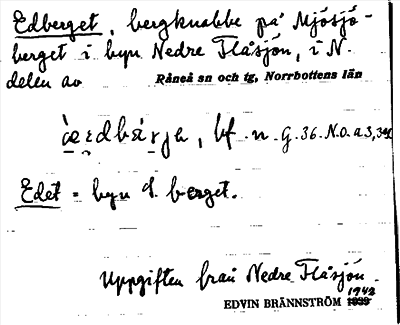 Edberget, bergknabbe på Mjösjö-
berget i byn Nedre Flåsjön, i N.
delen av Råneå sn och tg, Norrbottens län
bf. n. G. 36. N.O. a.3,
Edet = byn Ö. berget.
Uppgiften från Nedre Flåsjön.
1942
EDVIN BRÄNNSTRÖM 1939